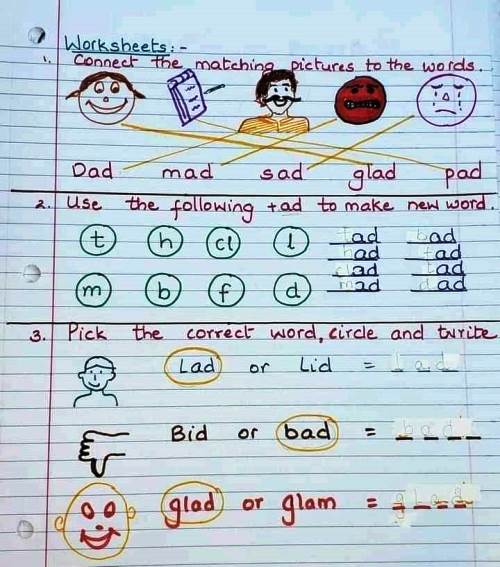 Worksheets:-
1. Connect the matching pictures to the words.
Dad mad sad glad pad
2. Use the following +ad to make new word.
t h cl l tad bad
had ad
clad ad
m b f d mad dad
3. Pick the correct word, circle and twrite
Lad or Lid = lad
Bid or bad = bad
glad or glam = glad